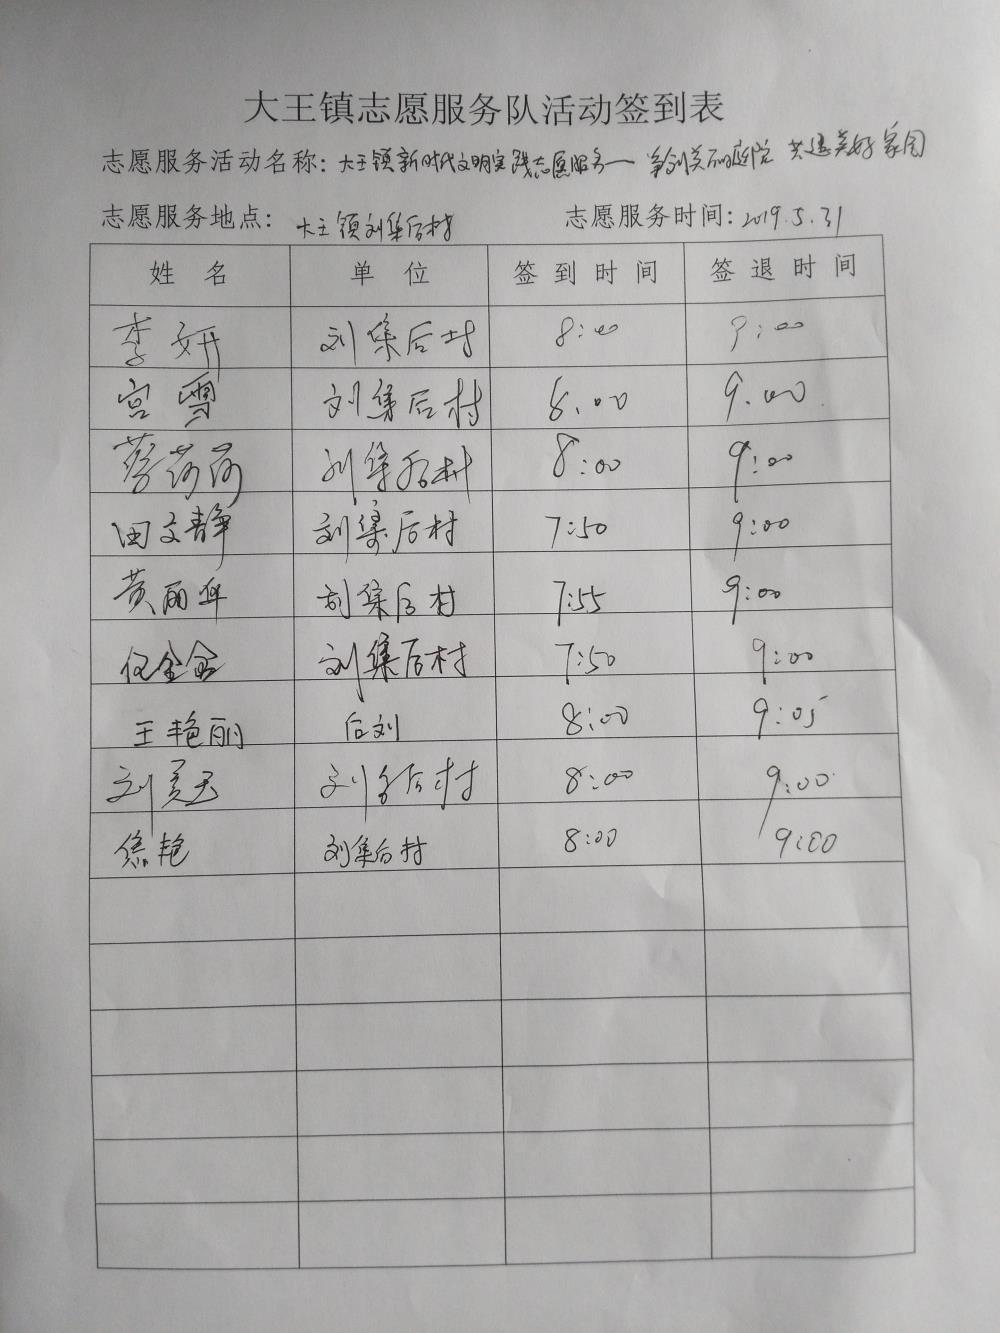 大王镇志愿服务队活动签到表
志愿服务活动名称: 大王镇新时代文明实践志愿服务—争创美丽庭院 共建美好家园
志愿服务地点: 大王镇刘集后村 志愿服务时间: 2019.5.31
姓名 单位 签到时间 签退时间
李妍 刘集后村 8:00 9:00
宫雪 刘集后村 8:00 9:00
蔡荷荷 刘集后村 8:00 9:00
田文静 刘集后村 7:50 9:00
黄丽华 刘集后村 7:55 9:00
任全全 刘集后村 7:50 9:00
王艳丽 后刘 8:00 9:05
刘美玉 刘集后村 8:00 9:00
焦艳 刘集后村 8:00 9:00